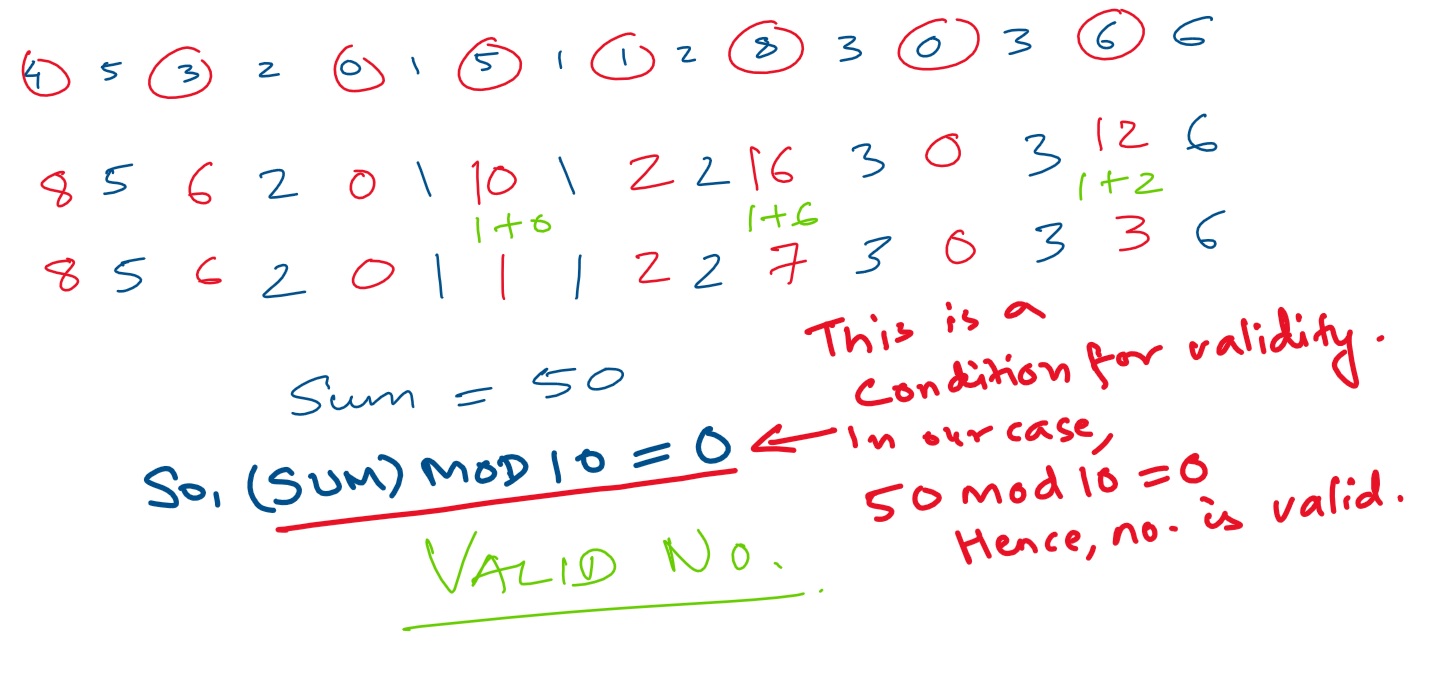 4 5 3 2 0 1 5 1 1 2 8 3 0 3 6 6
8 5 6 2 0 1 10 1 2 2 16 3 0 3 12 6
1+0 1+6 1+2
8 5 6 2 0 1 1 1 2 2 7 3 0 3 3 6
Sum = 50
So, (SUM) MOD 10 = 0
This is a
Condition for validity.
In our case,
50 mod 10 = 0
Hence, no. is valid.
VALID NO.